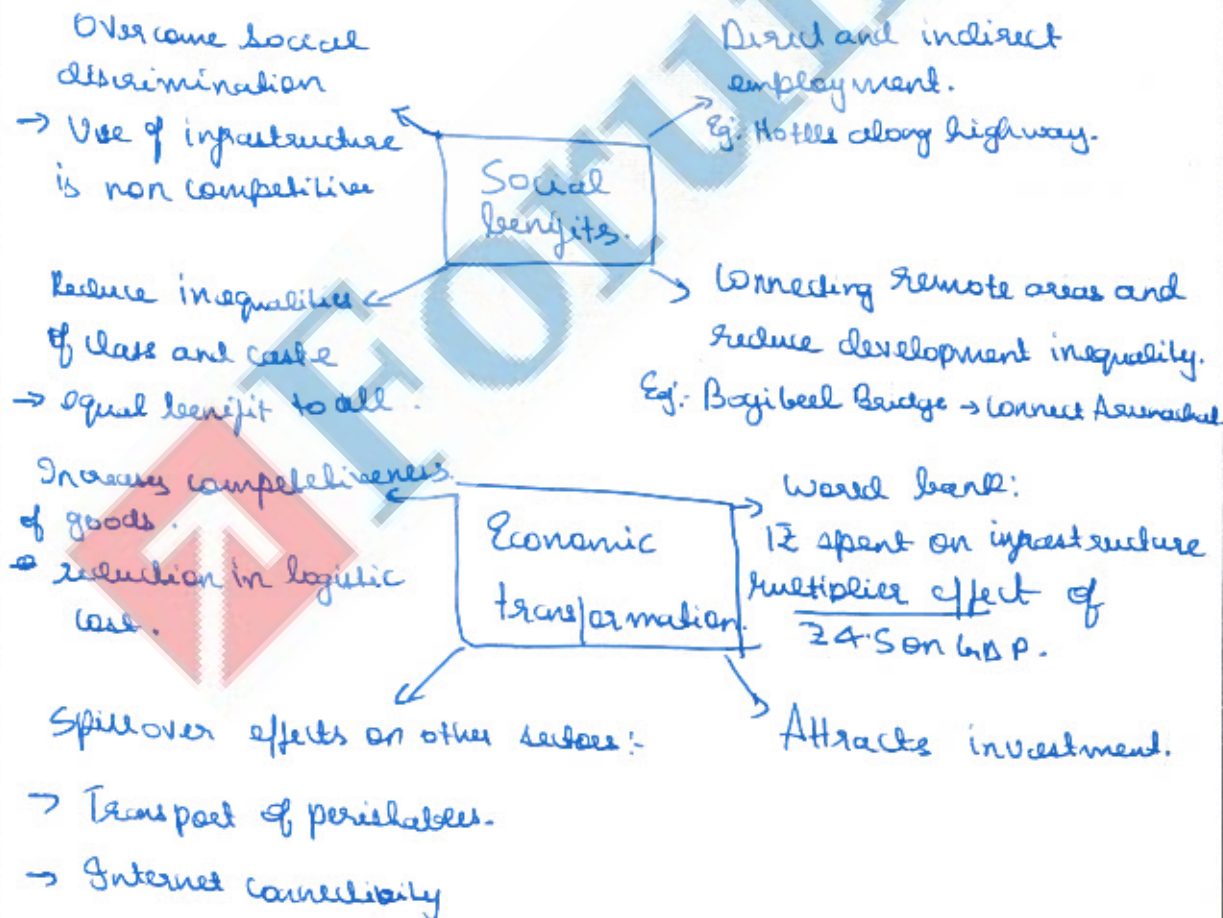 Overcome social
discrimination
→ Use of infrastructure
is non competitive
Direct and indirect
employment.
Eg: Hotles along highway.
Social
benifits.
Reduce inequalities
of class and caste
→ equal benifit to all.
Connecting remote areas and
reduce development inequality.
Eg:- Bogibeel Bridge → connect Arunachal
Increases competetiveness
of goods.
reduction in logistic
cost.
Economic
transformation.
World bank:
1₹ spent on infrastructure
multiplier effect of
₹4.5 on GDP.
Spillover effects on other sectors:-
→ Transport of perishables.
→ Internet connectivity
Attracts investment.
Forum